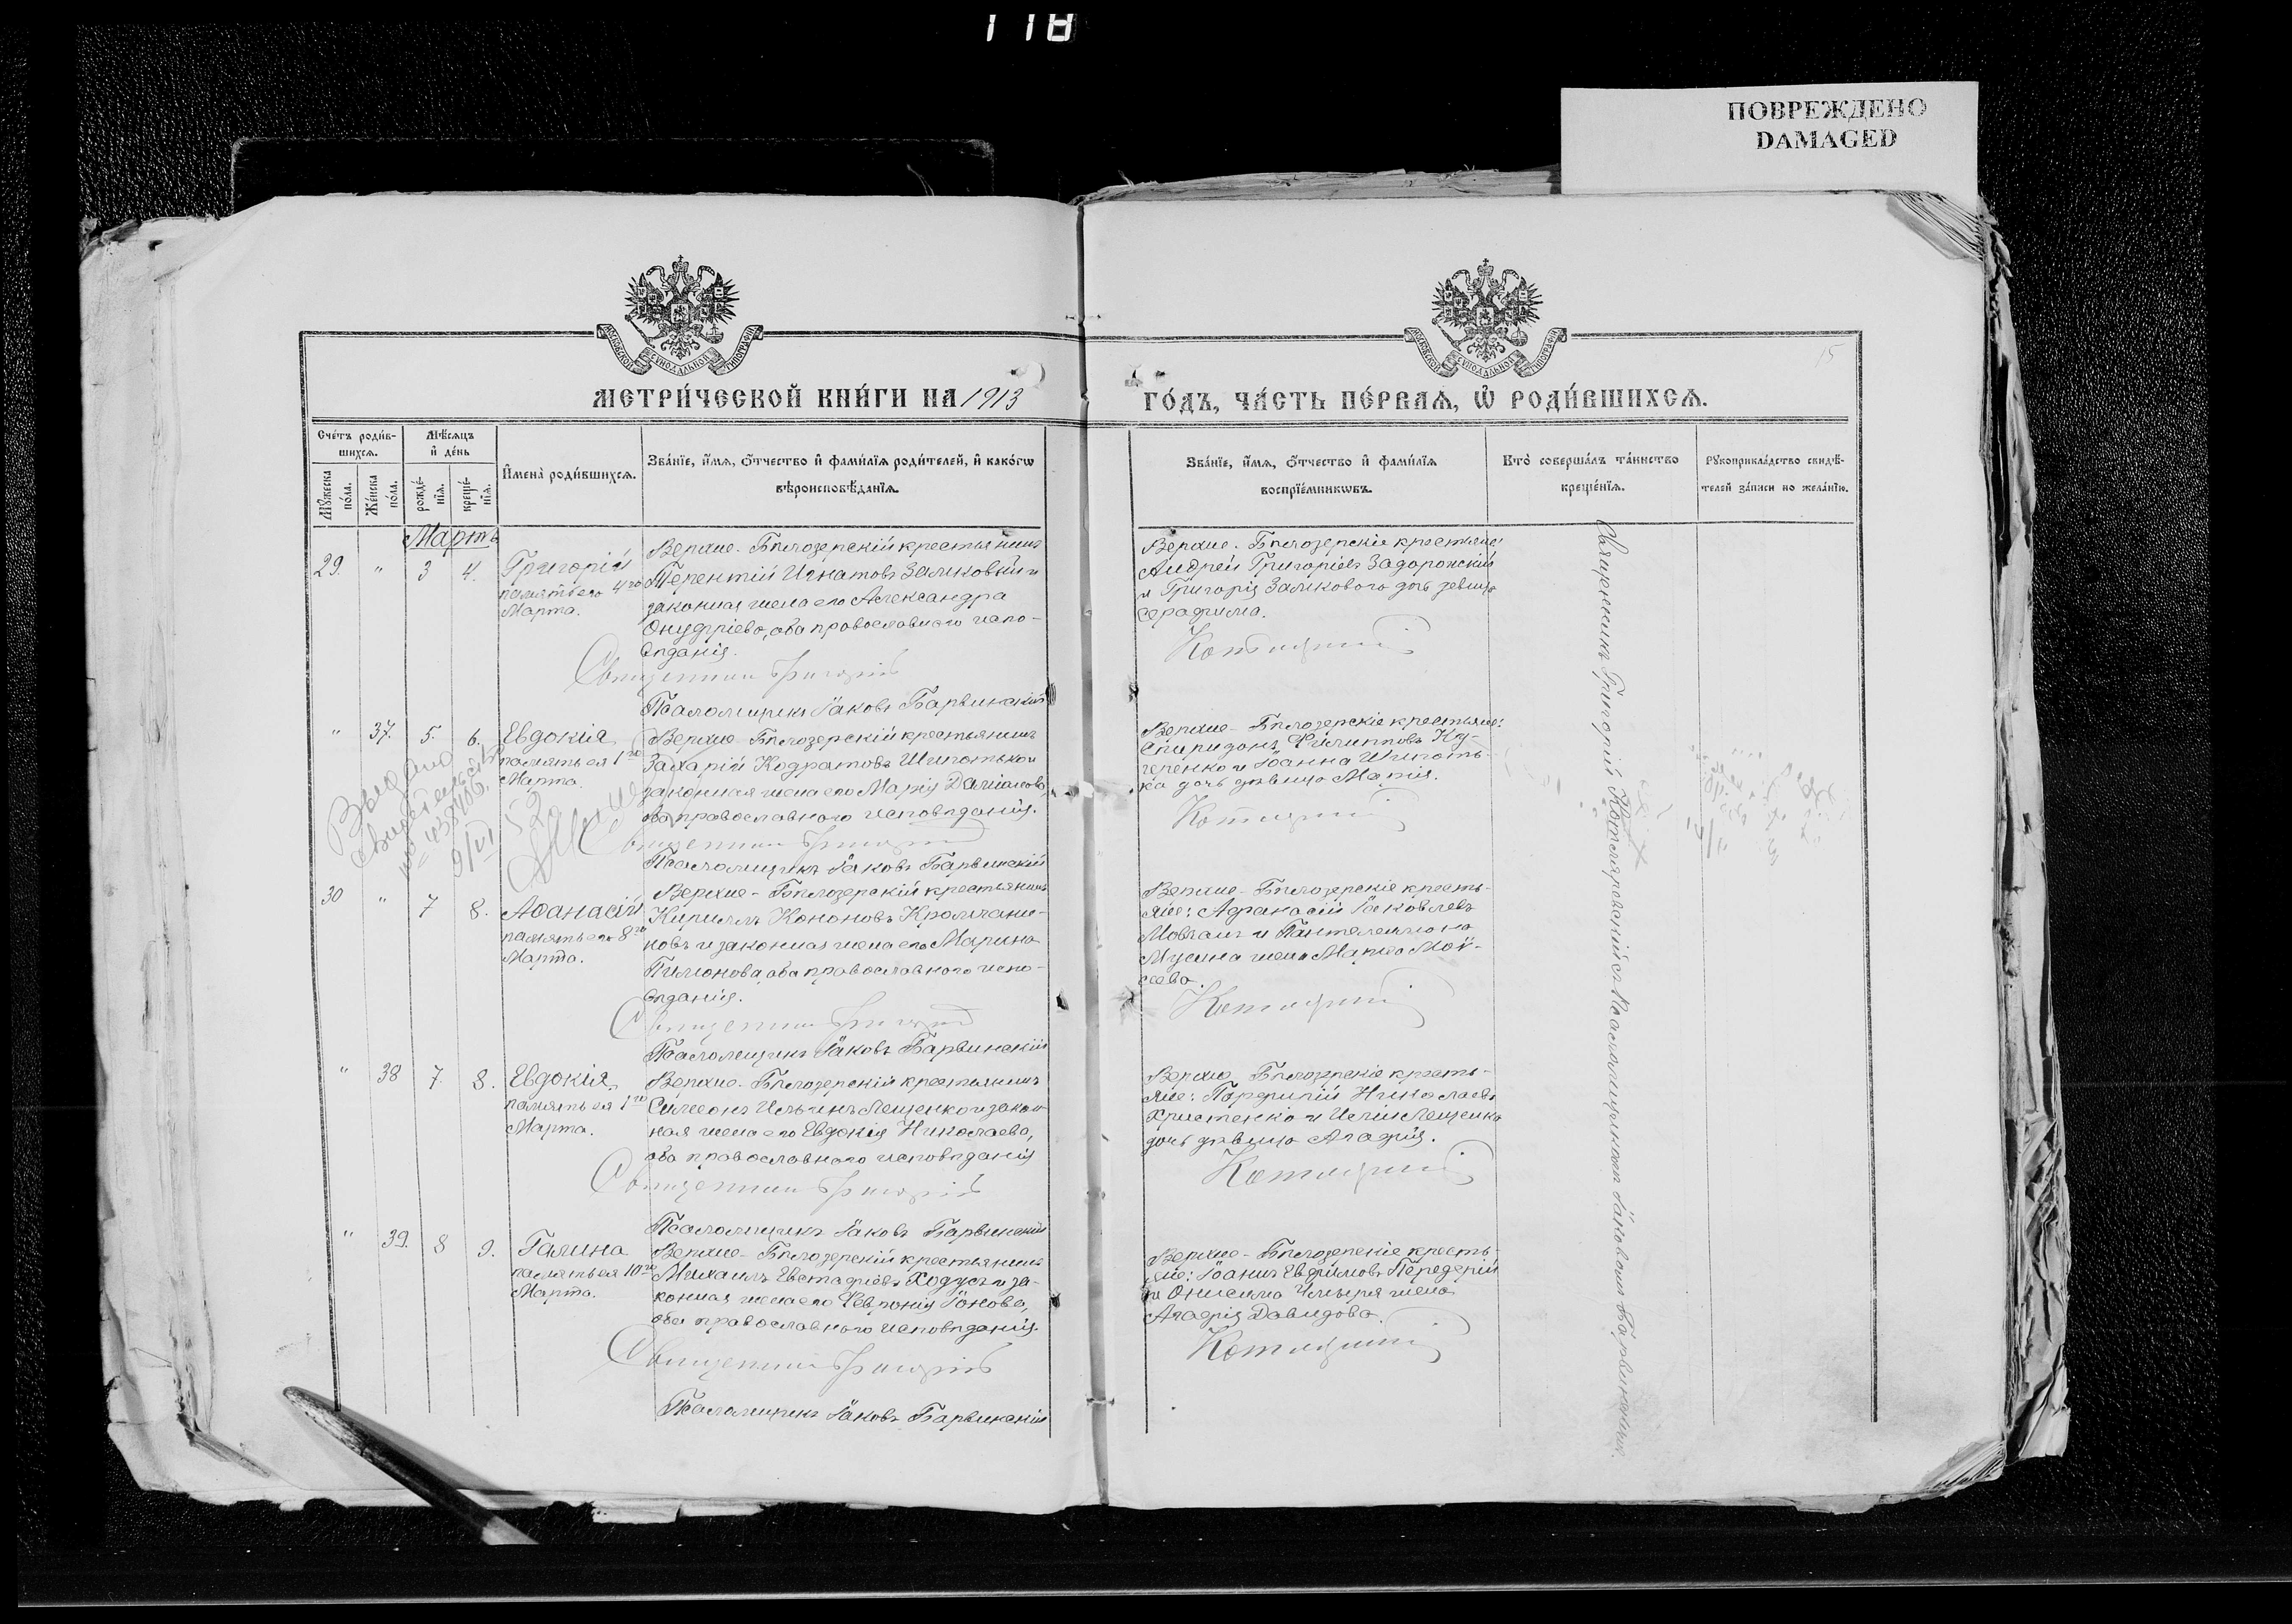 118
ПОВРЕЖДЕНО
DAMAGED
15
МОСКОВСКОЙ СѴНОДАЛЬНОЙ ТИПОГРАФІИ
МОСКОВСКОЙ СѴНОДАЛЬНОЙ ТИПОГРАФІИ
МЕТРИ́ЧЕСКОЙ КНИ́ГИ НА 1913
ГО́ДЪ, ЧА́СТЬ ПЕ́РВАѦ, Ѡ҆ РОДИ́ВШИХСѦ.
Сче́тъ роди́в-
шихсѧ.
Мꙋ́жеска
по́ла.
Же́нска
по́ла.
Мѣ́сѧцъ
и҆ де́нь
рожде́-
нїѧ.
креще́-
нїѧ.
И҆мена̀ роди́вшихсѧ.
Зва́нїе, и҆́мѧ, ѻ҆́тчество и҆ фами́лїѧ роди́телей, и҆ како́гѡ
вѣроисповѣ́данїѧ.
Зва́нїе, и҆́мѧ, ѻ҆́тчество и҆ фами́лїѧ
воспрїе́мникѡвъ.
Кто̀ соверша́лъ та́инство
креще́нїѧ.
Рꙋкоприкла́дство свидѣ́-
телей за́писи по жела́нїю.
Мартъ
29. " 3 4. Григорій
память его 4го
Марта.
Верхне-Бѣлозерскій крестьянинъ
Терентій Игнатовъ Заликовый и
законная жена его Александра
Онуфріева, оба православнаго испо-
вѣданія.
Священникъ Григорій
Псаломщикъ Іаковъ Барвинскій
Верхне-Бѣлозерскіе крестьяне:
Андрей Григоріевъ Задорожскій
и Григорія Заликового дочь девица
Серафима.
" 37. 5. 6. Евдокія
память ея 1го
Марта.
Верхне-Бѣлозерскій крестьянинъ
Захарій Кодратовъ Шпотько и
законная жена его Марія Даміанова,
оба православнаго исповѣданія.
Священникъ Григорій
Псаломщикъ Іаковъ Барвинскій
Верхне-Бѣлозерскіе крестьяне:
Спиридонъ Филипповъ Ку-
черенко и Іоанна Шпоть-
ка дочь дѣвица Марія.
Выдано
свидетельство
9/VI 52
30 " 7 8. Аѳанасій
память его 8го
Марта.
Верхне-Бѣлозерскій крестьянинъ
Кириллъ Кононовъ Кролчани-
ковъ и законная жена его Марина
Пимонова, оба православнаго испо-
вѣданія.
Священникъ Григорій
Псаломщикъ Іаковъ Барвинскій
Верхне-Бѣлозерскіе кресть-
яне: Афанасій Іаковлевъ
Мовчанъ и Пантелеимона
Мусина жена Марѳа Мои-
сеева.
" 38 7. 8. Евдокія
память ея 1го
Марта.
Верхне-Бѣлозерскій крестьянинъ
Симеонъ Ильинъ Лещенко и закон-
ная жена его Евдокія Николаева,
оба православнаго исповѣданія
Священникъ Григорій
Псаломщикъ Іаковъ Барвинскій
Верхне-Бѣлозерскіе кресть-
яне: Порфирій Николаевъ
Христенко и Иліи Лещенка
дочь дѣвица Агафія.
" 39. 8 9. Галина
память ея 10го
Марта.
Верхне-Бѣлозерскій крестьянинъ
Михаилъ Евстафіевъ Ходусъ и за-
конная жена его Февронія Іонова,
оба православнаго исповѣданія.
Священникъ Григорій
Псаломщикъ Іаковъ Барвинскій
Верхне-Бѣлозерскіе кресть-
яне: Іоаннъ Евфимовъ Передерій
и Онисима Чмыря жена
Агафія Давидова.
Священникъ Григорій Котляревскій съ Псаломщикомъ Іаковомъ Барвинскимъ.